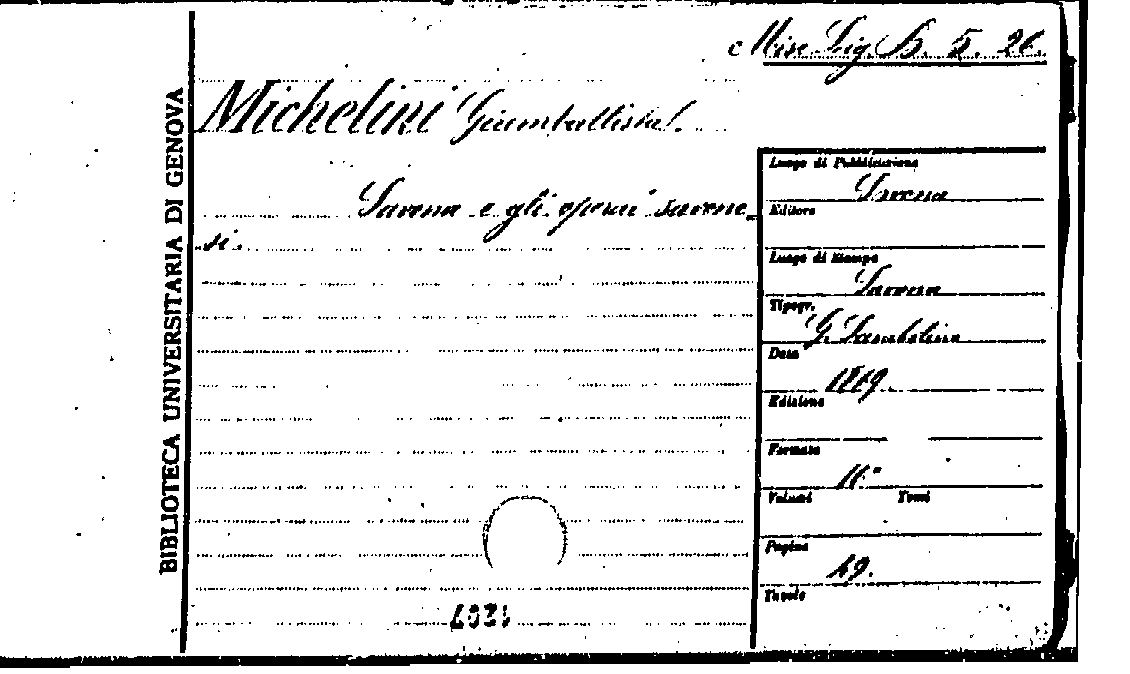 Misc. Lig. B. 5. 26.
Michelini Giambattista.
Savona e gli operai savone-
si.
BIBLIOTECA UNIVERSITARIA DI GENOVA
Luogo di Pubblicazione
Savona
Editore
Luogo di Stampa
Savona
Tipogr.
G. Sambolino
Data
Edizione
Formato
16°
Volumi Tomi
Pagine
49.
Tavole